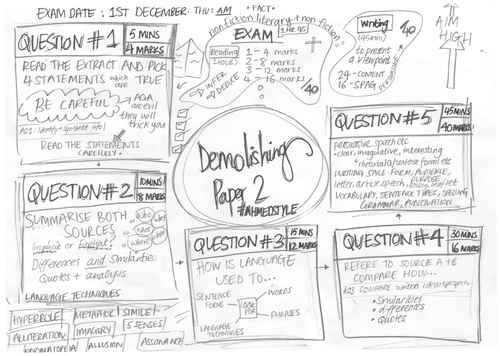 EXAM DATE : 1ST DECEMBER. THU: AM
• FACT •
nonfiction literary + non fiction
EXAM
1 HR 45
Reading
(1 HOUR)
1 - 4 marks
2 - 8 marks
3 - 12 marks
4 - 16 marks
/40
INFER
DEDUCE
Writing
(45 mins)
/40
to present
a viewpoint
24 - CONTENT
16 - SPAG
AIM
HIGH
QUESTION #1
5 MINS
4 MARKS
READ THE EXTRACT AND PICK
4 STATEMENTS which are TRUE
BE CAREFUL
AQA
are evil
they will
trick you
AO1: Identify + synthesise info
READ THE STATEMENTS
CAREFULLY.
QUESTION #2
10 MINS
8 MARKS
SUMMARISE BOTH
SOURCES
Who
what
where
Implicit or Explicit
Differences and Similarities
Quotes + analysis
LANGUAGE TECHNIQUES
HYPERBOLE
METAPHOR
SIMILE
ALLITERATION
IMAGERY
5 SENSES
ONOMATOPOEIA
ALLUSION
ASSONANCE
Demolishing
Paper 2
#AHMEDSTYLE
QUESTION #3
15 MINS
12 MARKS
HOW IS LANGUAGE
USED TO...
SENTENCE
FORMS
LOOK
FOR
WORDS
PHRASES
LANGUAGE
TECHNIQUES
QUESTION #4
30 MINS
16 MARKS
REFERE TO SOURCE A+B
COMPARE HOW...
AO3 COMPARE writers ideas + perspectives
• Similarities
• differences
• Quotes
QUESTION #5
45 MINS
40 MARKS
persuasive speech etc
• clear, imaginative, interesting
WRITING STYLE: FORM, AUDIENCE,
PURPOSE
letter, article, speech, essay, leaflet
VOCABULARY, SENTENCE TYPES, SPELLING
GRAMMAR, PUNCTUATION